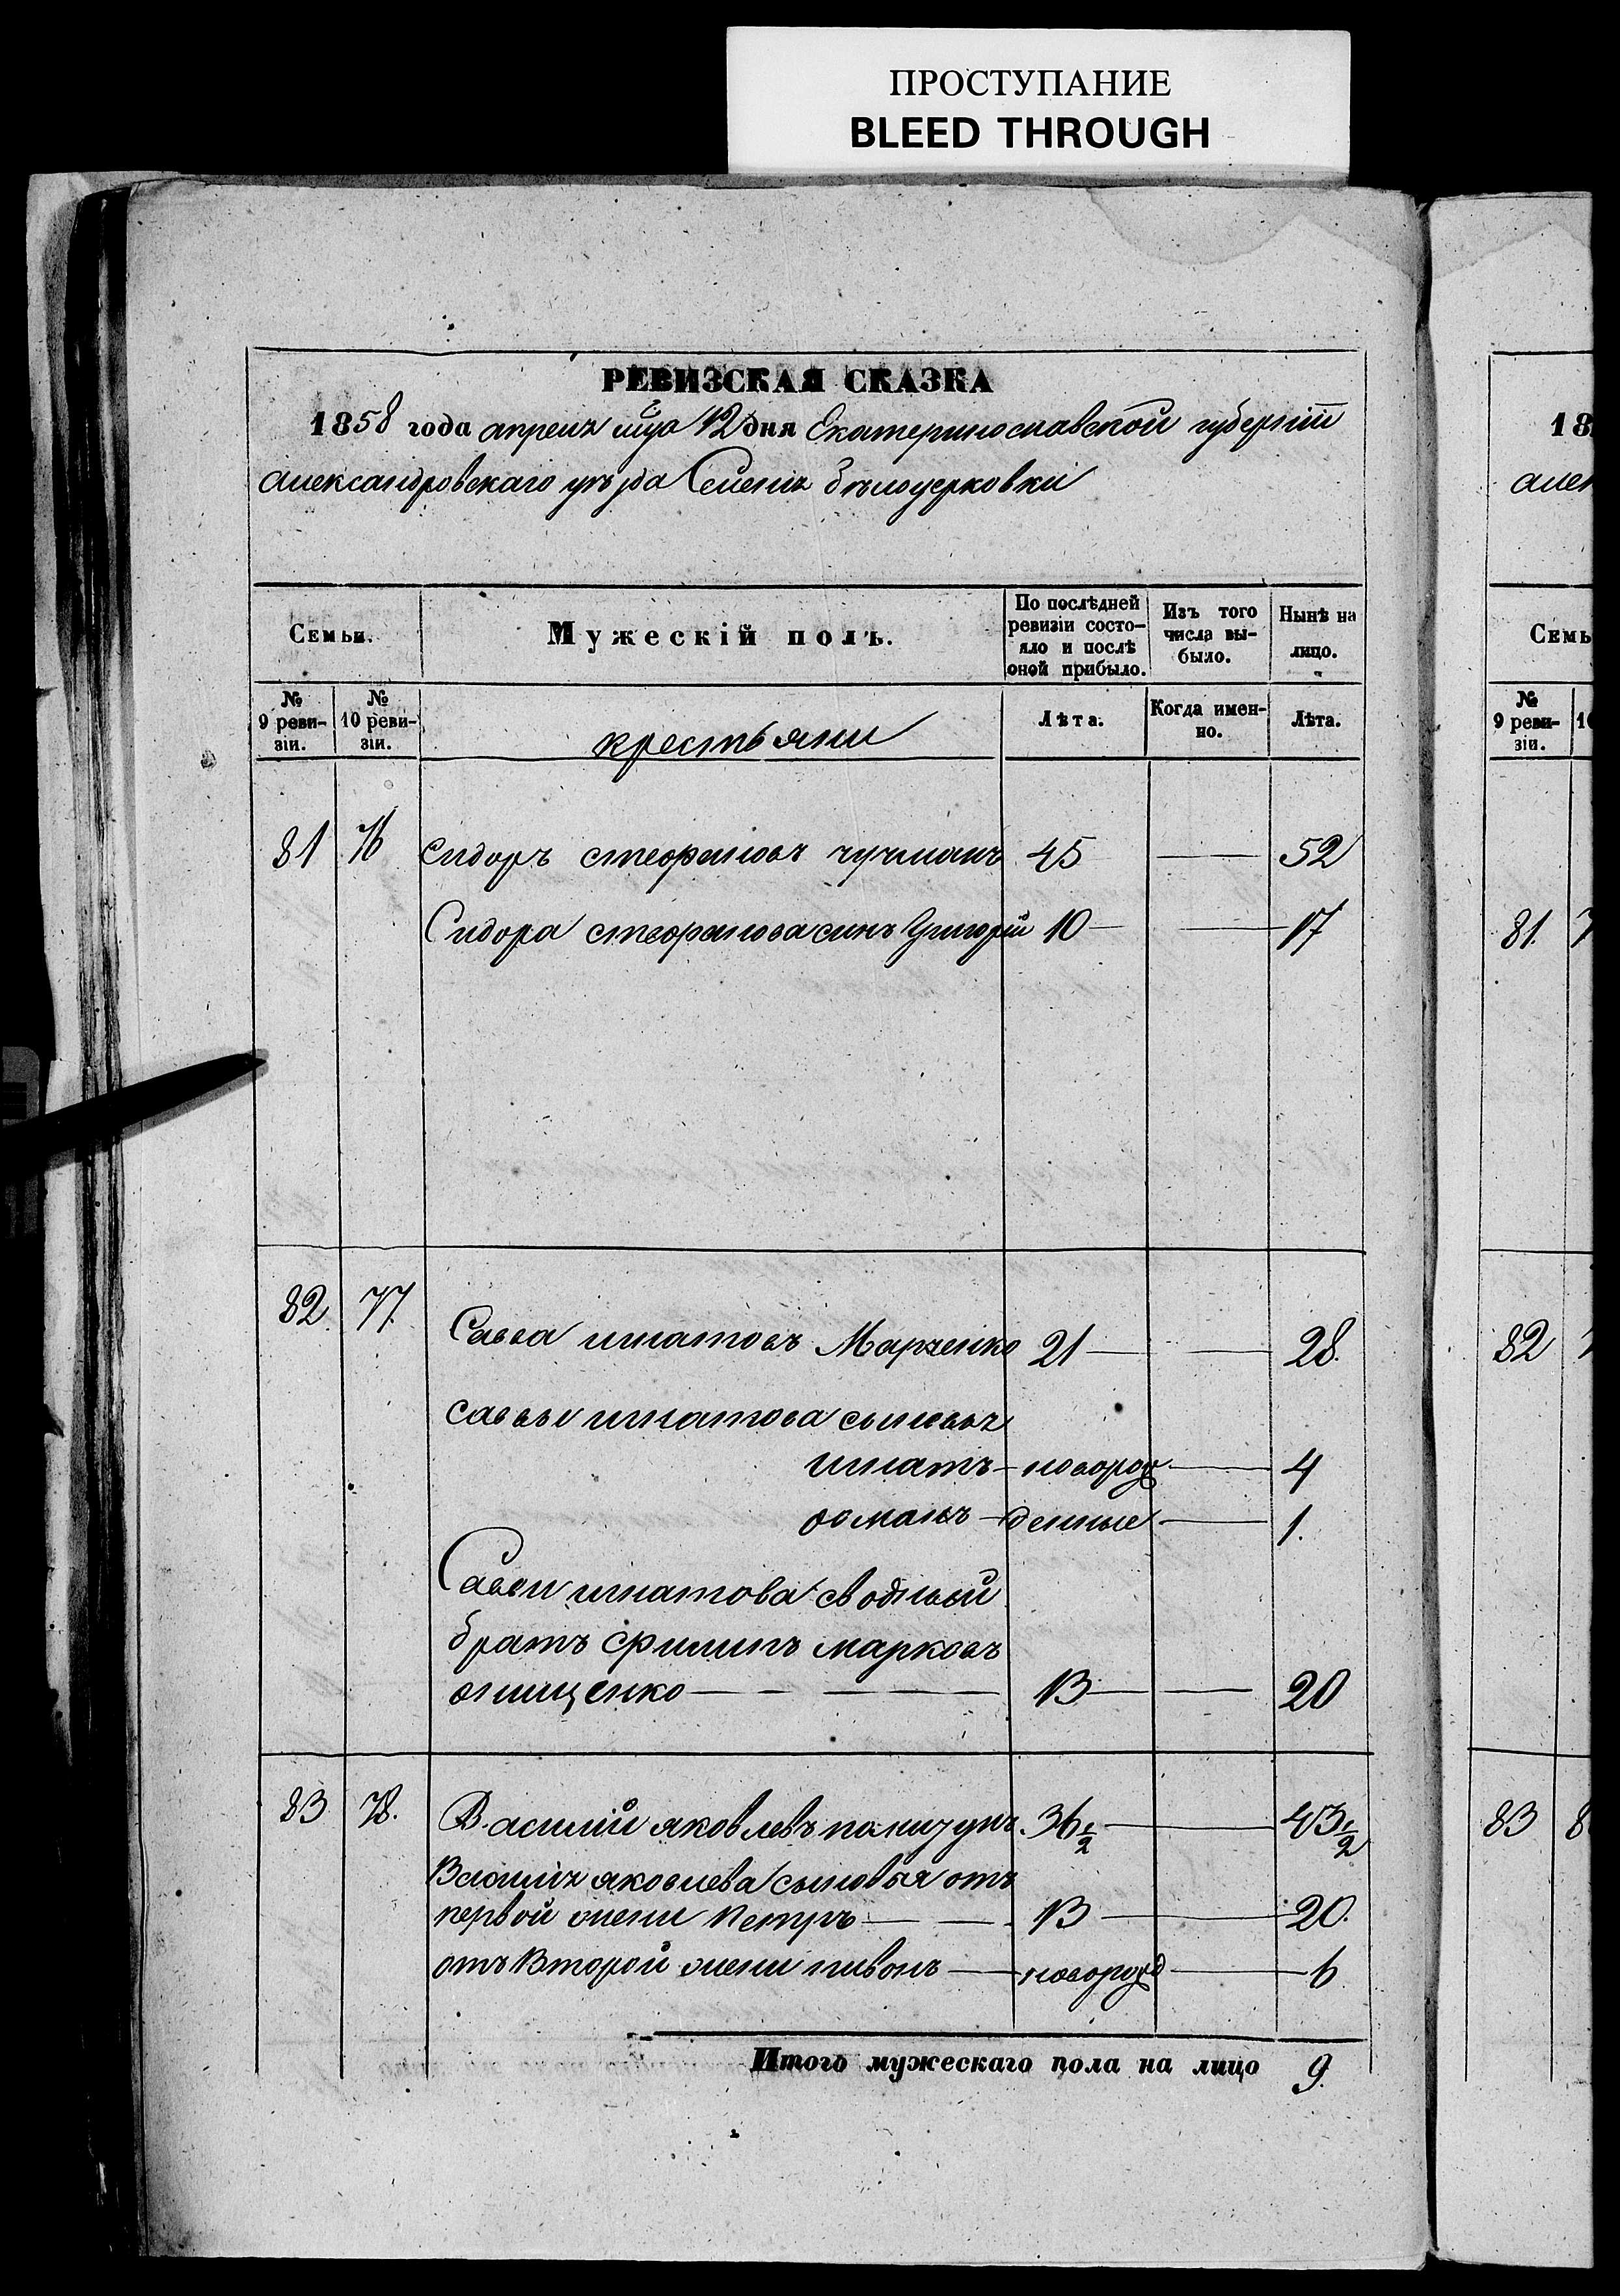 ПРОСТУПАНИЕ
BLEED THROUGH
РЕВИЗСКАЯ СКАЗКА
1858 года апреля мца 12 дня Екатеринославской губерніи
александровскаго уѣзда Селенія бѣлоцерковки
Семьи. Мужескій полъ. По послѣдней ревизіи состо- яло и послѣ оной прибыло. Изъ того числа вы- было. Нынѣ на лицо.
№ 9 реви- зіи. № 10 реви- зіи. крестьяни Лѣта. Когда имен- но. Лѣта.
81 76 Сидоръ стефановъ чучманъ 45 — 52
Сидора стефанова синъ Григорій 10 — 17
82. 77. Савва игнатовъ Марченко 21 — 28.
саввы игнатова сыновья
игнатъ — новорож — 4
романъ — денные — 1.
Саввы игнатова сводный
братъ филипъ марковъ
онищенко — 13 — 20
83 78. Василій яковлевъ 36 1/2 — 43 1/2
Василія яковлева сыновья отъ
первой жени Петръ — 13 — 20.
отъ Второй жени пивонъ — новорожд — 6
Итого мужескаго пола на лицо 9.
18
алек
Семь
№ 9 реви- зіи. 10
81. 7
82
83 8